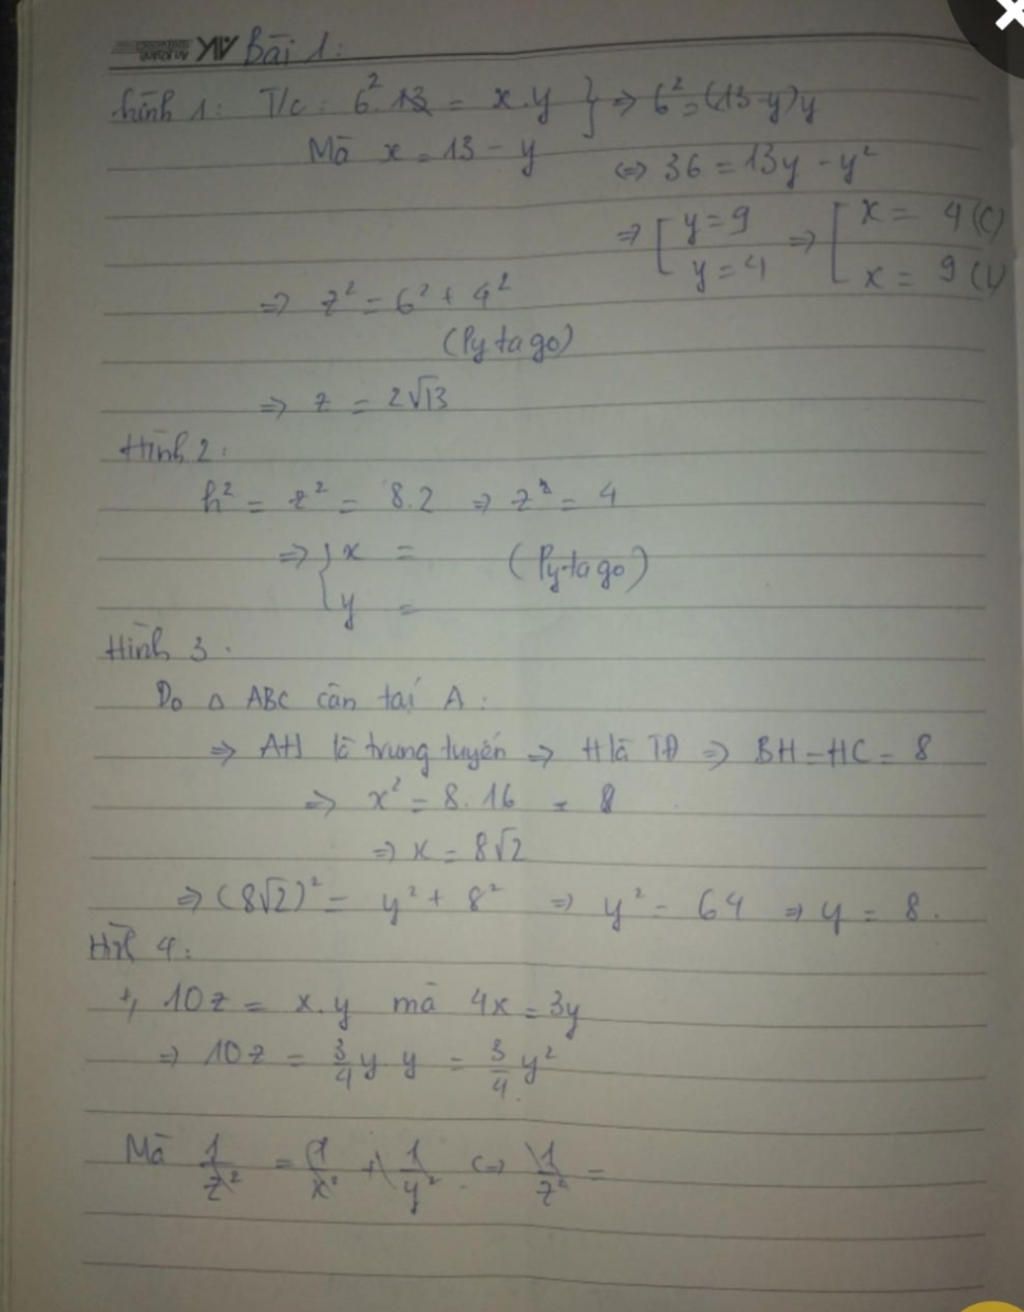 Bài 1:
hình 1: T/c: 6². 13 = x.y } ⇒ 6² = (13-y)y
Mà x = 13 - y
⇔ 36 = 13y - y²
⇒ [ y = 9 ⇒ [ x = 4 (C)
y = 4 x = 9 (L)
⇒ z² = 6² + 4²
(Pytago)
⇒ z = 2√13
Hình 2:
h² = z² = 8.2 ⇒ z² = 4
⇒ { x = (Pytago)
y =
Hình 3.
Do Δ ABC cân tại A:
⇒ AH là trung tuyến ⇒ H là TĐ ⇒ BH = HC = 8
⇒ x² = 8.16 = 8
⇒ x = 8√2
⇒ (8√2)² = y² + 8² ⇒ y² = 64 ⇒ y = 8.
Hìh 4:
+, 10z = x.y mà 4x = 3y
⇒ 10z = 3/4 y y = 3/4 y²
Mà 1/z² = 1/x² + 1/y² ⇔ 1/z² =